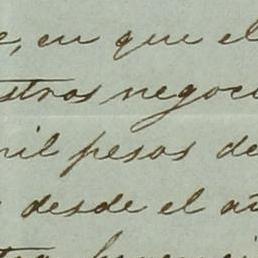 e, en que el
stros negoci
mil pesos de
desde el añ